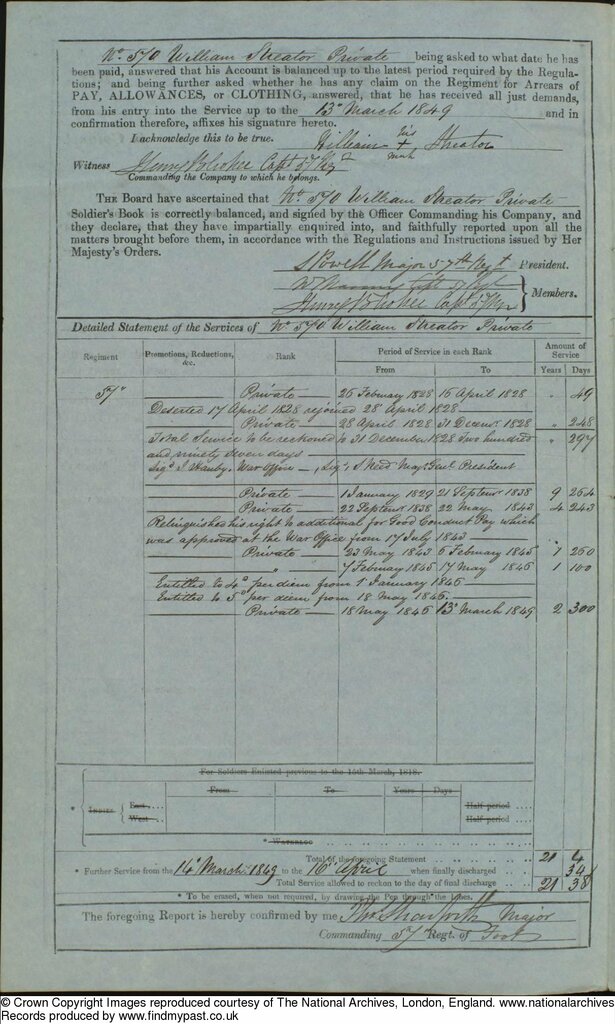 No 570 William Streator Private being asked to what date he has
been paid, answered that his Account is balanced up to the latest period required by the Regula-
tions; and being further asked whether he has any claim on the Regiment for Arrears of
PAY, ALLOWANCES, or CLOTHING, answered, that he has received all just demands,
from his entry into the Service up to the 13th March 1849 and in
confirmation therefore, affixes his signature hereto.
I acknowledge this to be true. William his + mark Streator
Witness Capt 57 Regt
Commanding the Company to which he belongs.
THE Board have ascertained that No 570 William Streator Private
Soldier's Book is correctly balanced, and signed by the Officer Commanding his Company, and
they declare, that they have impartially enquired into, and faithfully reported upon all the
matters brought before them, in accordance with the Regulations and Instructions issued by Her
Majesty's Orders.
S Powell Major 57th Regt President.
Capt 57 Regt
Capt 57 Regt Members.
Detailed Statement of the Services of No 570 William Streator Private
Regiment Promotions, Reductions, &c. Rank Period of Service in each Rank Amount of Service
From To Years Days
57th Private 26 February 1828 16 April 1828 " 49
Deserted 17 April 1828 rejoined 28 April 1828
Private 28 April 1828 31 Decemr 1828 " 248
Total Service to be reckoned to 31 December 1828 Two hundred " 297
and ninety seven days
War Office President
Private 1 January 1829 21 Septemr 1838 9 264
Private 22 Septemr 1838 22 May 1843 4 243
Relinquishes his right to additional for Good Conduct Pay which
was approved at the War Office from 17 July 1843
Private 23 May 1843 6 February 1845 1 260
" 7 February 1845 17 May 1846 1 100
Entitled to 4d per diem from 1 January 1846
Entitled to 5d per diem from 18 May 1846
Private 18 May 1846 13th March 1849 2 300
For Soldiers Enlisted previous to the 15th March, 1818.
From To Years Days
* INDIES { East Half-period
West Half-period
* WATERLOO
Total of the foregoing Statement 21 4
* Further Service from the 14th March 1849 to the 16th April when finally discharged 34
Total Service allowed to reckon to the day of final discharge 21 38
* To be erased, when not required, by drawing the Pen through the lines.
The foregoing Report is hereby confirmed by me Major
Commanding 57th Regt. of Foot
© Crown Copyright Images reproduced courtesy of The National Archives, London, England. www.nationalarchives
Records produced by www.findmypast.co.uk